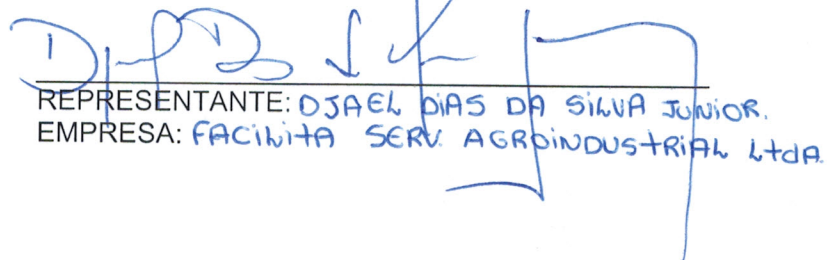 REPRESENTANTE: DJAEL DIAS DA SILVA JUNIOR.
EMPRESA: FACILITA SERV. AGROINDUSTRIAL LtdA